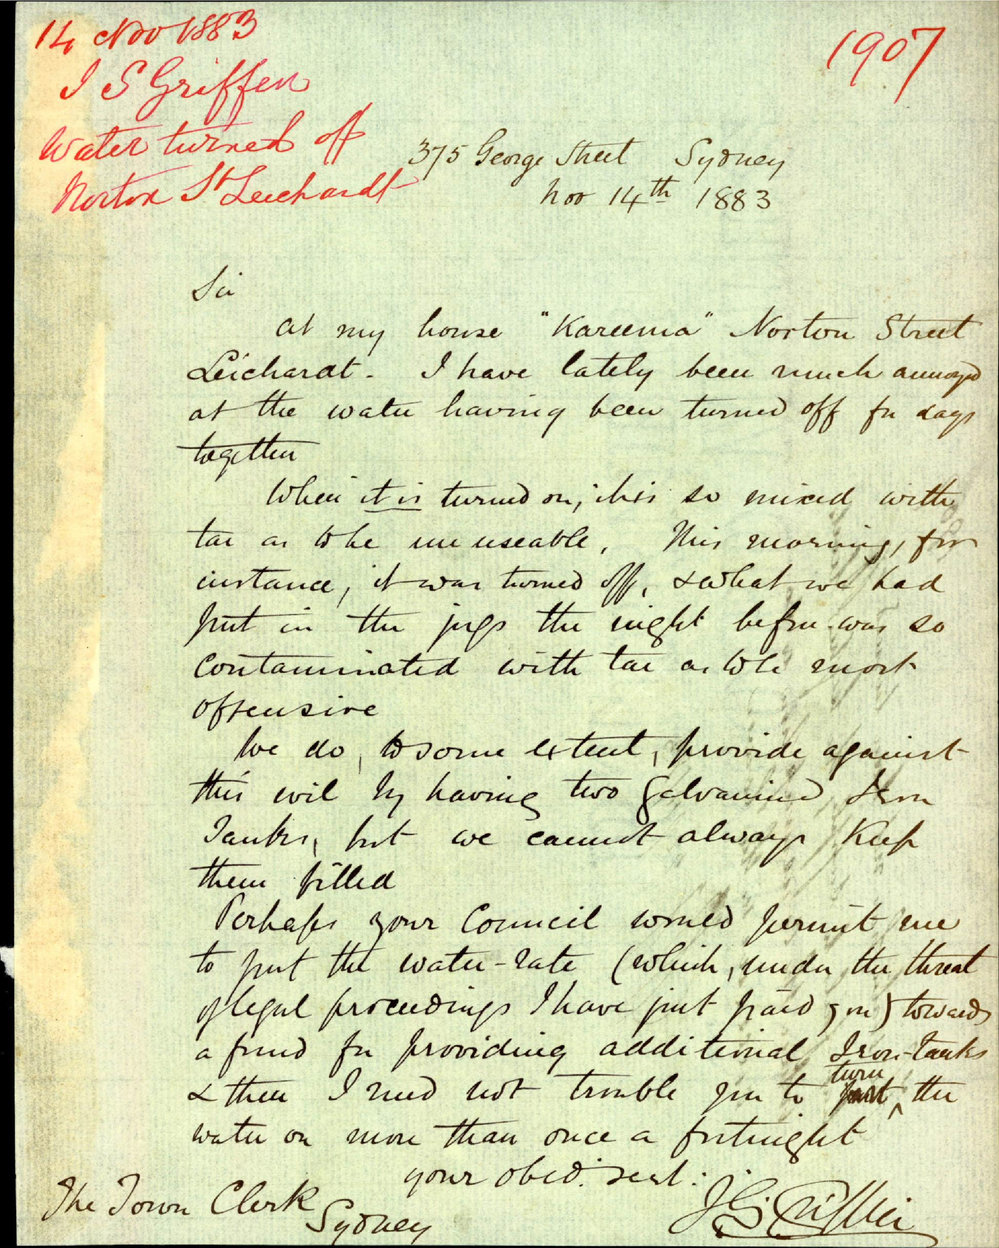 14 Nov 1883
1907
J S Griffen
Water turned off
Norton St Leichardt
375 George Street Sydney
Nov 14th 1883
Sir
At my house "Kareema" Norton Street
Leichardt - I have lately been much annoyed
at the water having been turned off for days
together
When it is turned on, it is so mixed with
tar as to be unuseable. This morning, for
instance, it was turned off, & what we had
put in the jugs the night before was so
contaminated with tar as to be most
offensive
We do, to some extent, provide against
this evil by having two Galvanized Iron
Tanks, but we cannot always keep
them filled
Perhaps your Council would permit me
to put the water-rate (which, under the threat
of legal proceedings I have just paid you) towards
a fund for providing additional Iron-tanks
& then I need not trouble you to turn the
water on more than once a fortnight
your obed. sert:
The Town Clerk
Sydney